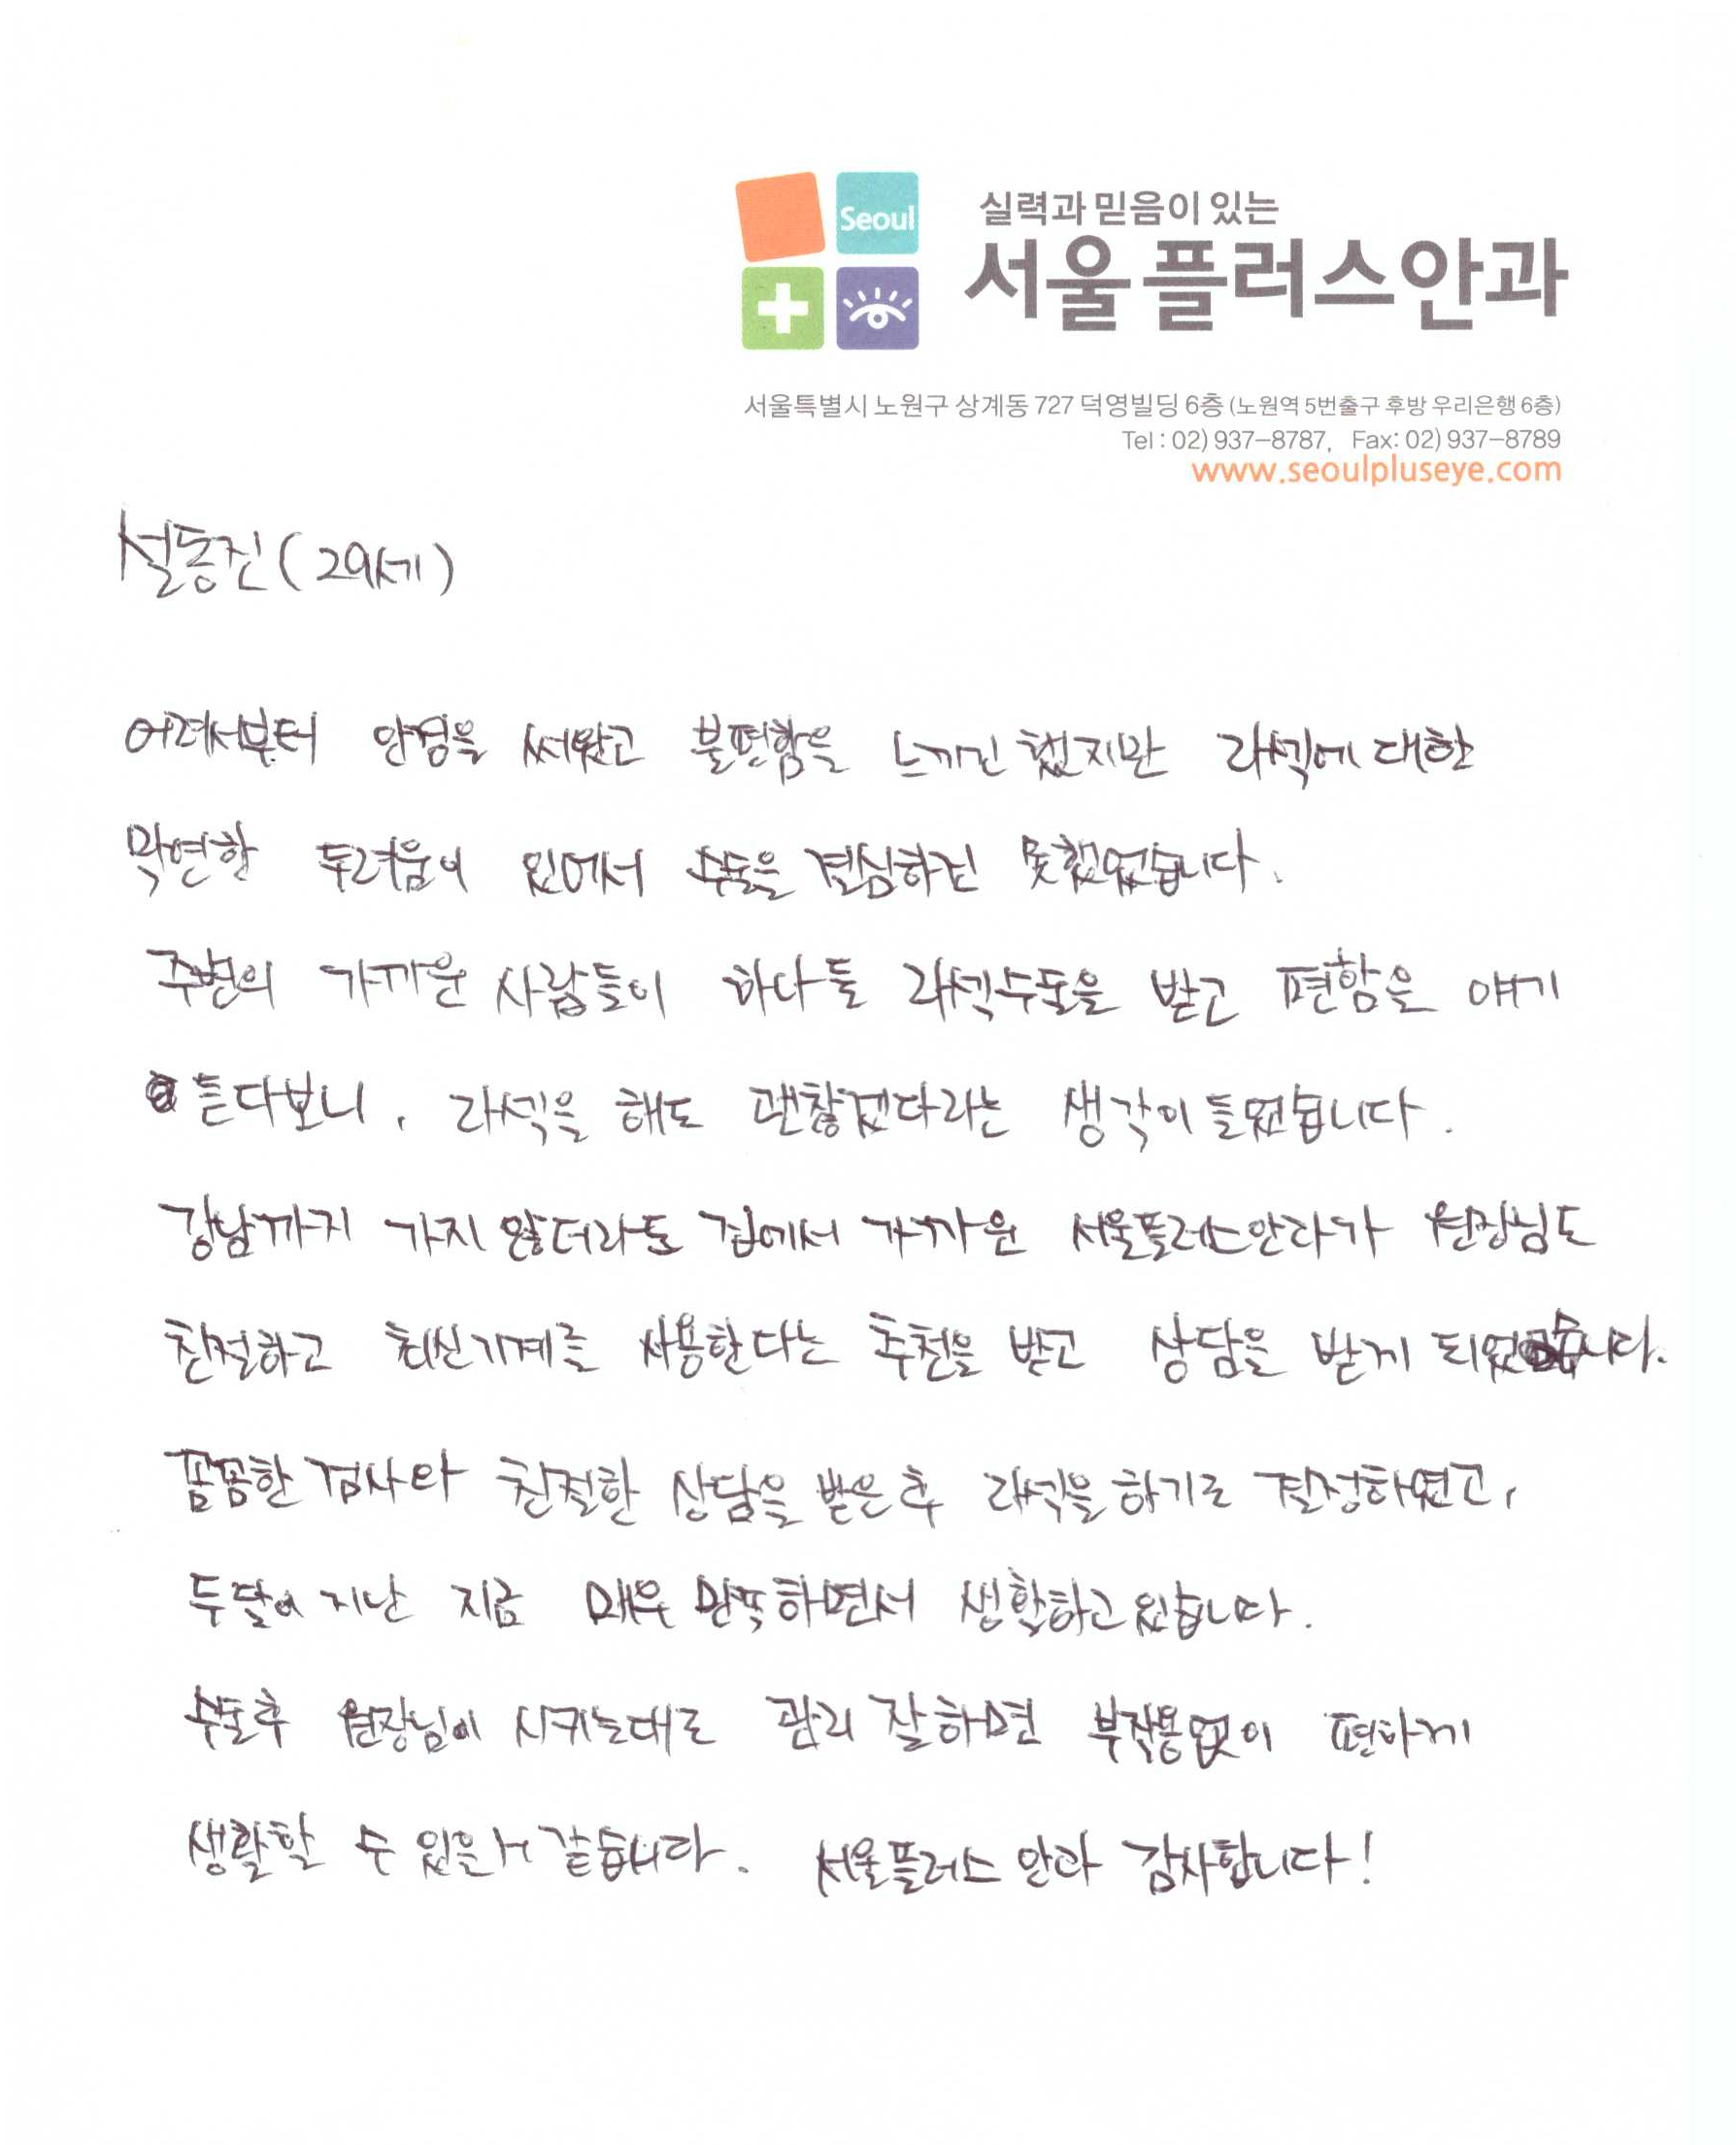 Seoul
실력과 믿음이 있는
서울플러스안과
서울특별시 노원구 상계동 727 덕영빌딩 6층 (노원역 5번출구 후방 우리은행 6층)
Tel : 02) 937-8787, Fax: 02) 937-8789
www.seoulpluseye.com
설동진 (29세)
어려서부터 안경을 써왔고 불편함을 느끼긴 했지만 라섹에 대한
막연한 두려움이 있어서 수술을 결심하진 못했었습니다.
주변의 가까운 사람들이 하나둘 라섹수술을 받고 편함을 얘기
듣다보니, 라섹을 해도 괜찮겠다라는 생각이 들었습니다.
강남까지 가지 않더라도 집에서 가까운 서울플러스안과가 원장님도
친절하고 최신기계를 사용한다는 추천을 받고 상담을 받게 되었습니다.
꼼꼼한 검사와 친절한 상담을 받은 후 라섹을 하기로 결정하였고,
두달이 지난 지금 매우 만족하면서 생활하고 있습니다.
수술후 원장님이 시키는대로 관리 잘하면 부작용없이 편하게
생활할 수 있을거 같습니다. 서울플러스 안과 감사합니다!